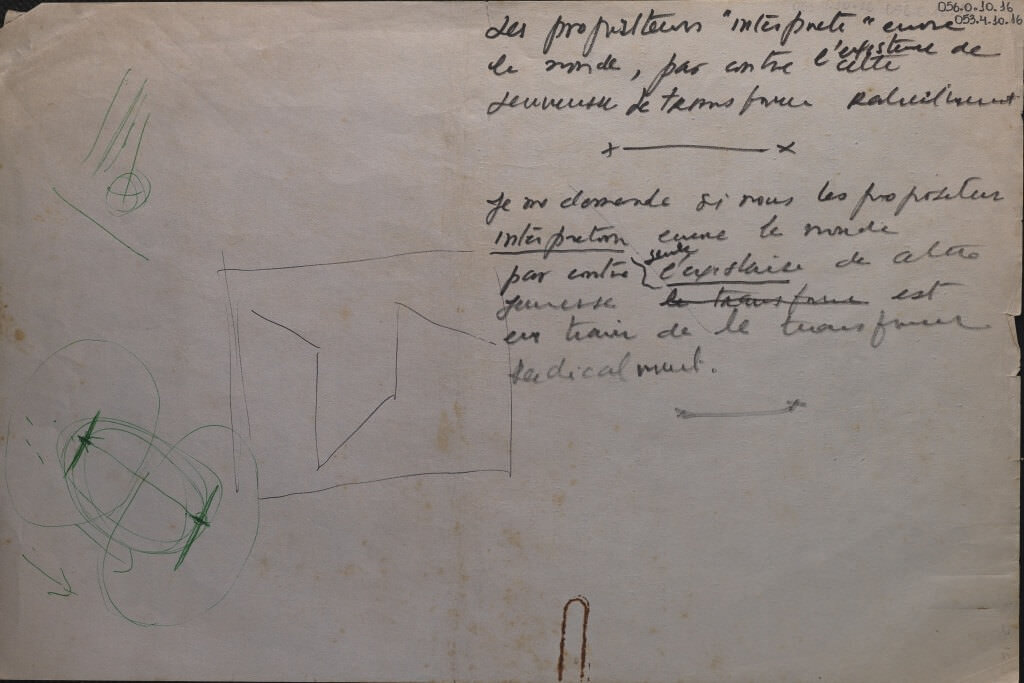 056.0.10.16
053.4.10.16
Les propositeurs "intérprete" encore
le monde, par contre l'existence de cette
jeunesse le transformer radicalment
Je me demande si nous les propositeur
intérpretom encore le monde
par contre seule l'existance de cette
jeunesse le transforme est
en train de le transformer
radicalment.